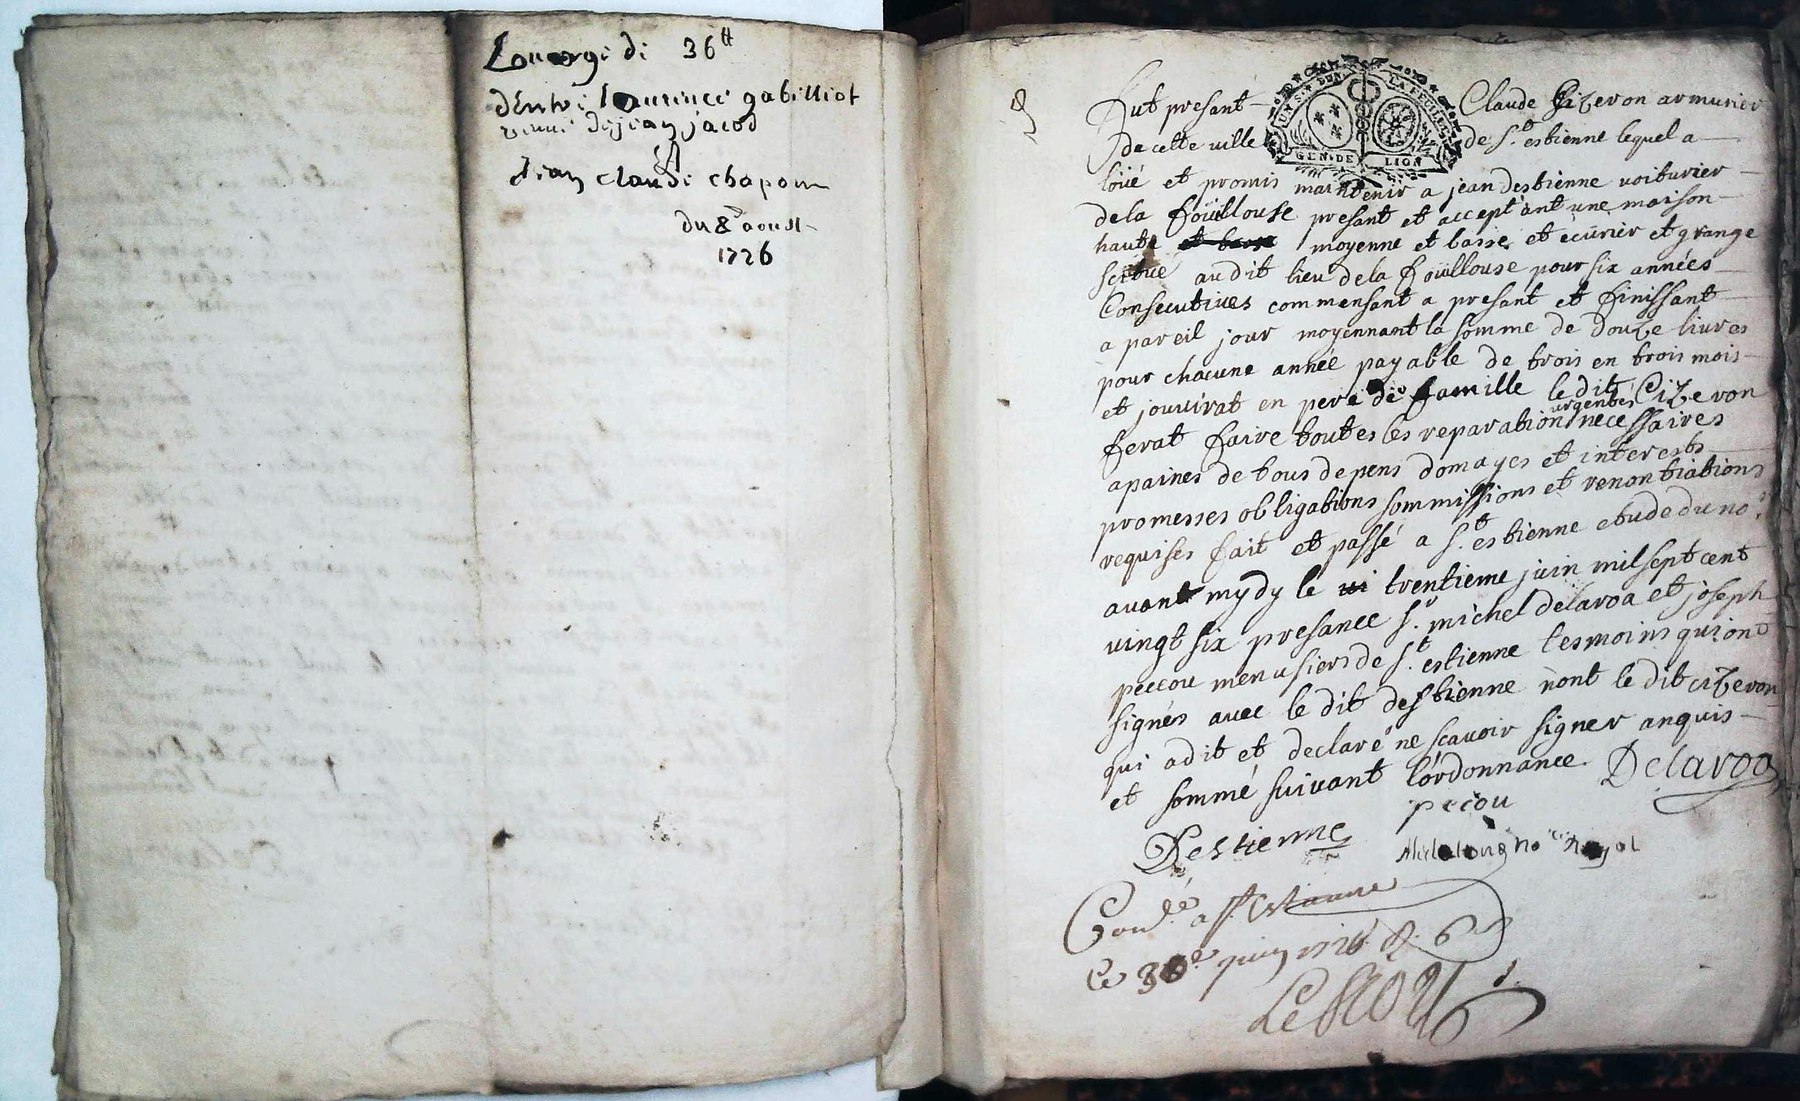 Louage de 36 tt
d'entre laurence gabilliot
veuve de jean jacod
et
Jean claude chapon
du 8e aoust
1726
Fut présant Claude Cizeron armurier
UNS DUN LA FEUILLE
GEN. DE LION
de cette ville de St. estienne lequel a
loüé et promis maintenir a jean destienne voiturier
de la foüillouse présant et acceptant une maison
haute et basse moyenne et basse et ecürier et grange
scitüe audit lieu de la foüillouse pour six années
Consecutives commensant a présant et finissant
a pareil jour moyennant la somme de douze livres
pour chacune année payable de trois en trois mois
et jouvirat en pere de famille le dit Cizeron
ferat faire toutes les reparations urgentes necessaires
a paines de tous depens domages et interests
promesses obligations sommissions et renontiations
requises fait et passé a St. estienne etude du no.re
avant mydy le vi trentieme juin mil sept cent
vingt six présance Sr. michel delaroa et joseph
peccou menusiers de St. estienne tesmoins qui ont
signés avec le dit destienne nont le dit cizeron
qui a dit et declaré ne scavoir signer anquis
et sommé suivant l'ordonnance. Delaroa
pecou
Destienne
no.re Royal
Con.lé a St. Estienne
Ce 30e juin 1726 R. 6 s